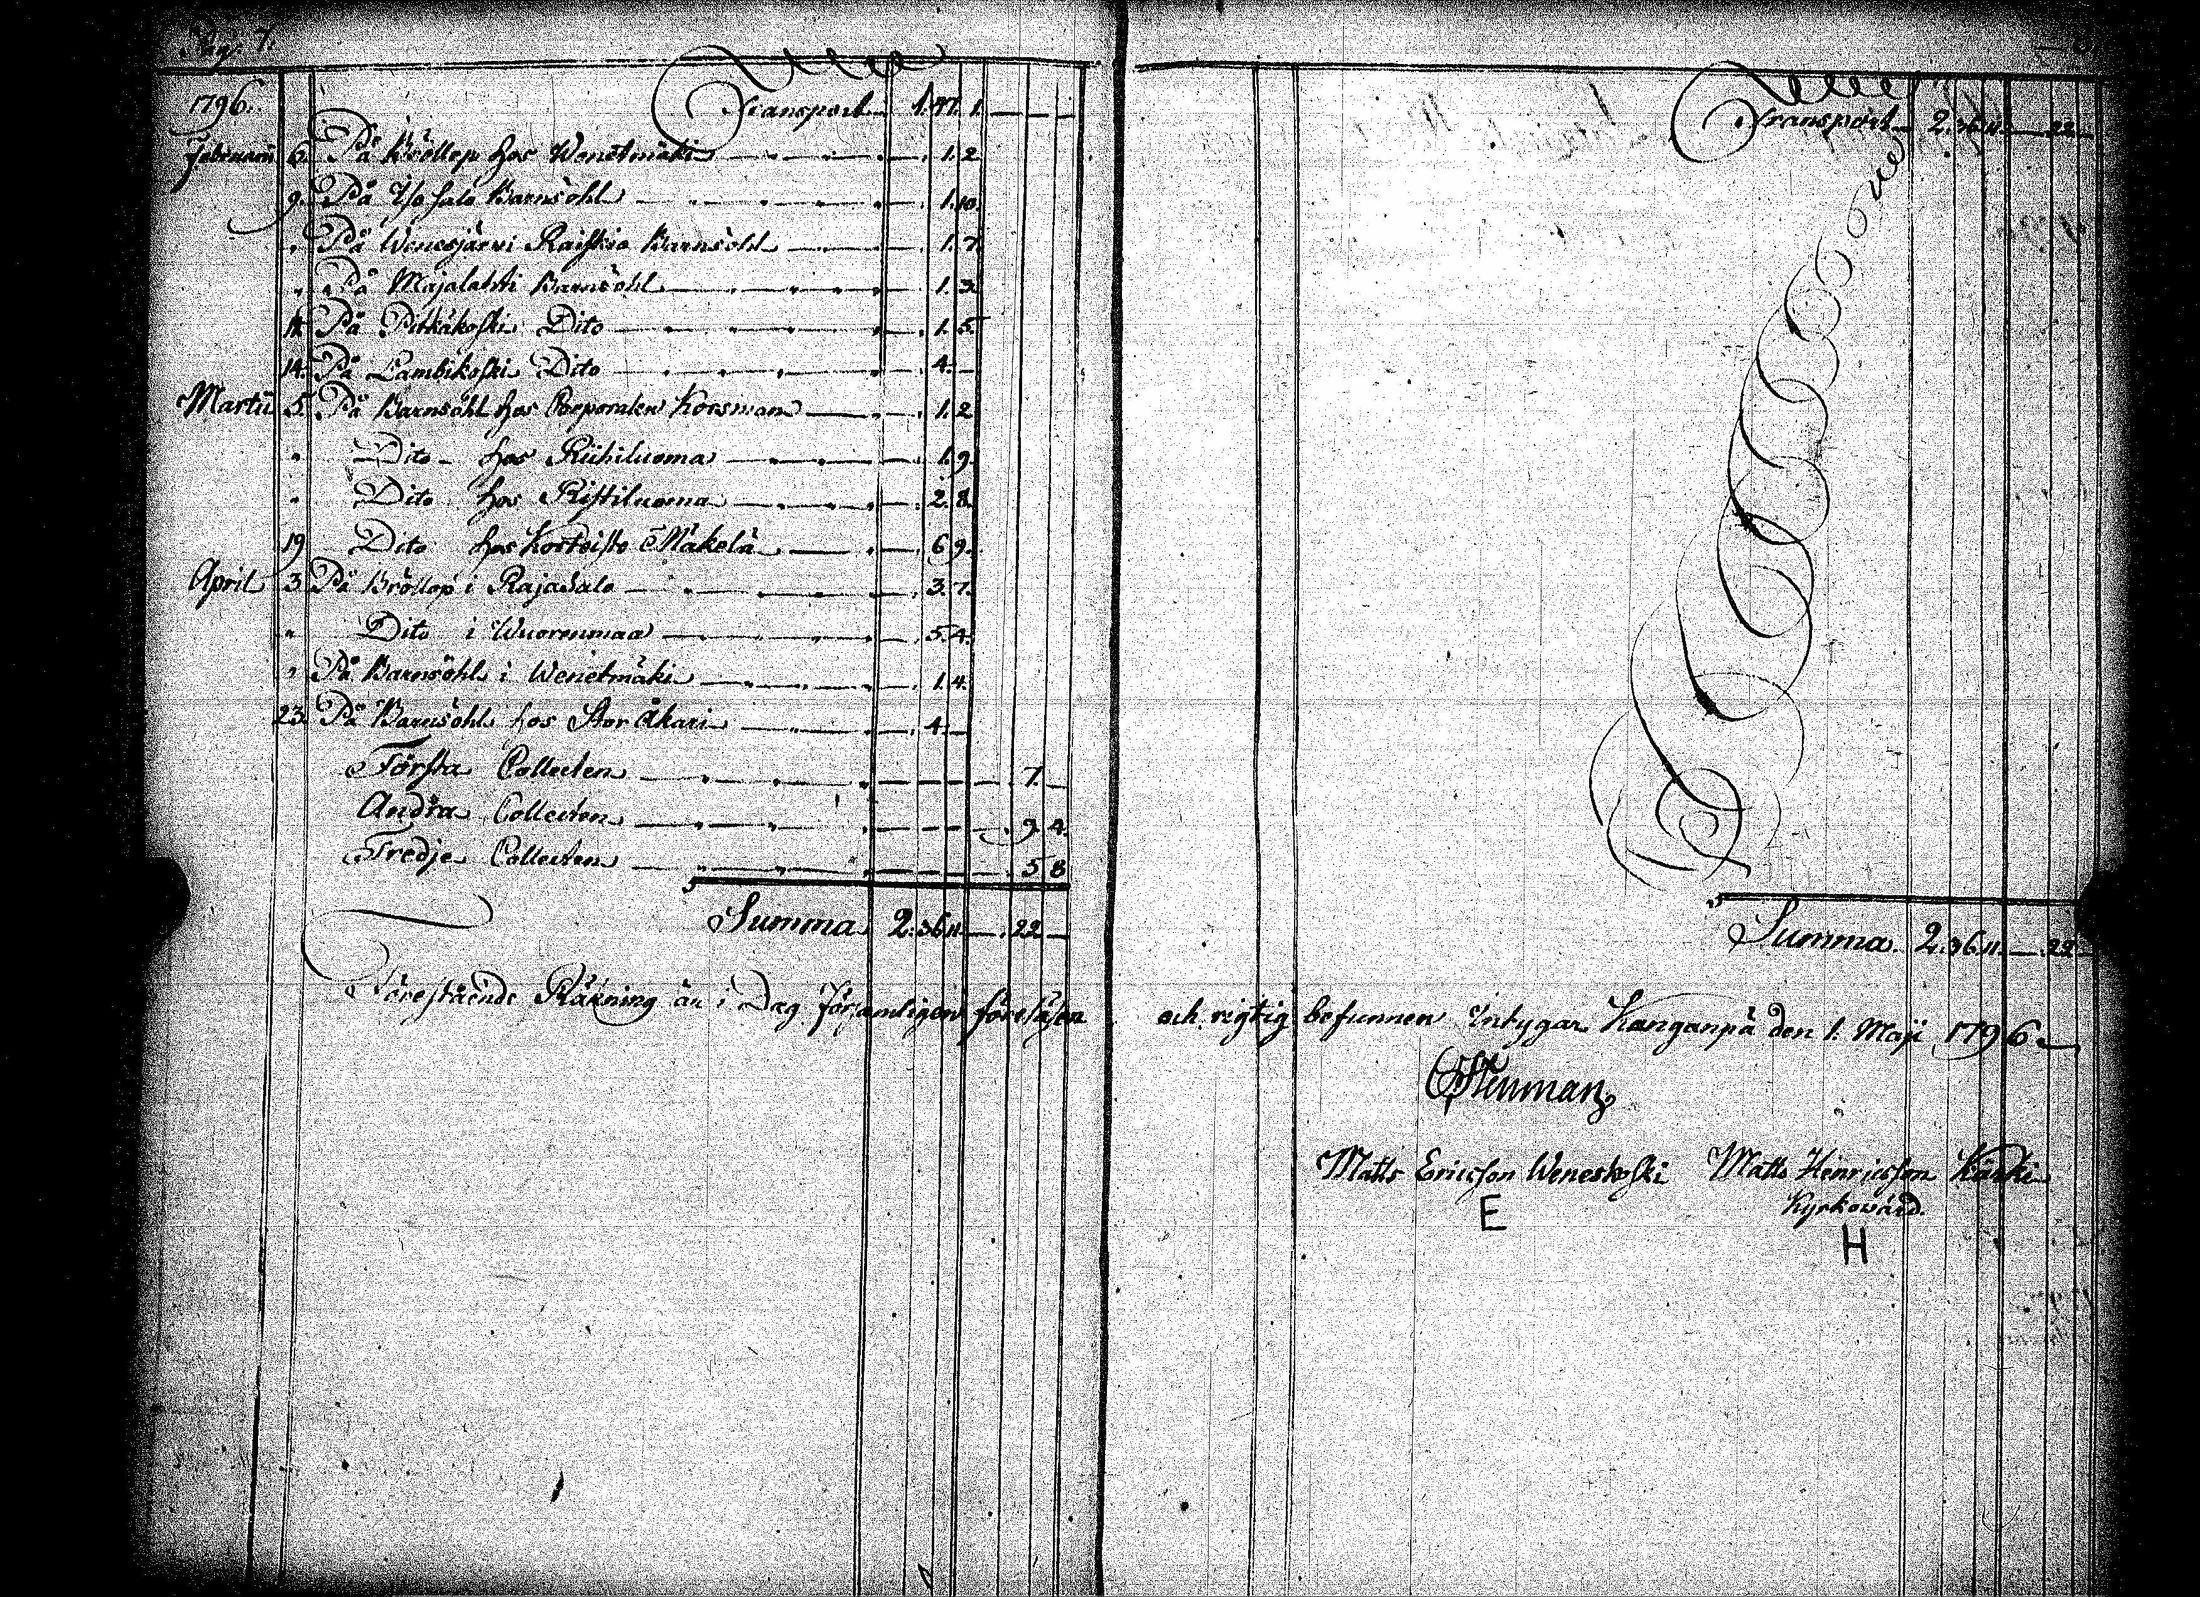 Pag. 7.
1796. Transport 1. 47. 1. — — —
Februarii 6. På Bröllop hos Wenetmäki — 1. 2.
9. På Iso salo Barnsöhl — 1. 10.
" På Wenesjärwi Raiskio Barnsöhl — 1. 7.
" På Majalahti Barnsöhl — 1. 3.
11. På Pitkäkoski Dito — 1. 5.
14. På Lambikoski Dito — 4. —
Martii 5. På Barnsöhl hos Corporalen Korsman — 1. 2.
" Dito hos Riihiluoma — 1. 9.
" Dito hos Ristiluoma — 2. 8.
19 Dito hos Korteisto Mäkelä — 6. 9.
April 3 På Bröllop i Rajasalo — 3. 7.
" Dito i Wuorenmaa — 5. 4.
" På Barnsöhl i Wenetmäki — 1. 4.
23. På Barnsöhl hos Stor Åkari — 4. —
Första Collecten — 7. —
Andra Collecten — 9. 4.
Tredje Collecten — 5 8
Summa 2. 36. 11. — . 22 —
Förestående Räkning är i Dag församlingen föreläsen
Transport 2. 36. 11. — 22 —
Summa. 2. 36. 11. — 22 —
och rigtig befunnen Intygar Kanganpä den 1. Maji 1796.
Stenman
Matts Ericsson Weneskoski Matts Henricsson Karki
Kyrkowärd.
E H